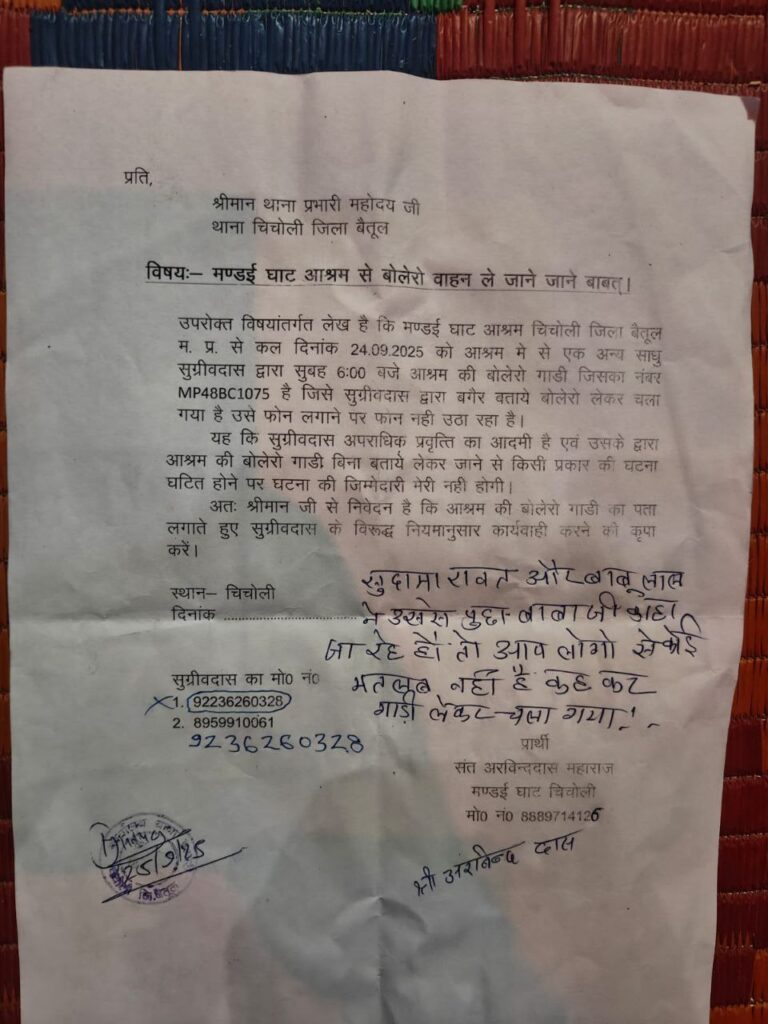 प्रति,
श्रीमान थाना प्रभारी महोदय जी
थाना चिचोली जिला बैतूल
विषयः– मण्डई घाट आश्रम से बोलेरो वाहन ले जाने जाने बाबत्।
उपरोक्त विषयांतर्गत लेख है कि मण्डई घाट आश्रम चिचोली जिला बैतूल
म. प्र. से कल दिनांक 24.09.2025 को आश्रम मे से एक अन्य साधु
सुग्रीवदास द्वारा सुबह 6:00 बजे आश्रम की बोलेरो गाडी जिसका नंबर
MP48BC1075 है जिसे सुग्रीवदास द्वारा बगेर बताये बोलेरो लेकर चला
गया है उसे फोन लगाने पर फोन नही उठा रहा है।
यह कि सुग्रीवदास अपराधिक प्रवृत्ति का आदमी है एवं उसके द्वारा
आश्रम की बोलेरो गाडी बिना बताये लेकर जाने से किसी प्रकार की घटना
घटित होने पर घटना की जिम्मेदारी मेरी नही होगी।
अतः श्रीमान जी से निवेदन है कि आश्रम की बोलेरो गाडी का पता
लगाते हुए सुग्रीवदास के विरूद्ध नियमानुसार कार्यवाही करने की कृपा
करें।
स्थान– चिचोली
दिनांक ..............................
सुदामा रावत और बाबूलाल
ने उससे पुछा बाबाजी कहा
जा रहे हो तो आप लोगो से कोई
मतलब नहीं है कह कर
गाड़ी लेकर चला गया!
सुग्रीवदास का मो0 नं0
1. 92236260328
2. 8959910061
9236260328
प्रार्थी
संत अरविन्ददास महाराज
मण्डई घाट चिचोली
मो0 नं0 8889714126
श्री अरविन्द दास
25/9/25
जि.बैतूल